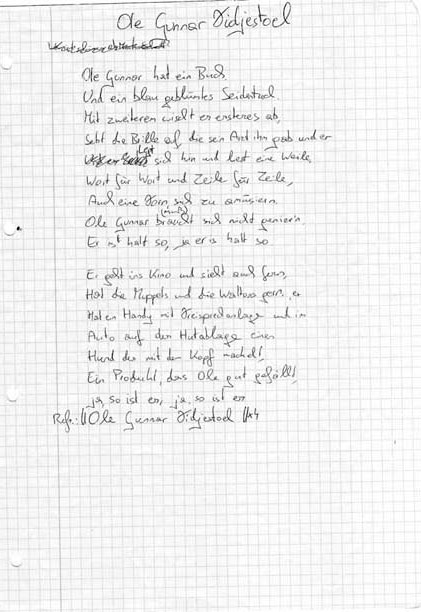 Ole Gunnar Tidjestoel
Ole Gunnar hat ein Buch
Und ein blau geblümtes Seidentuch
Mit zweiterem wischt er ersteres ab,
Setzt die Brille auf die sein Arzt ihm gab und er
Legt sich hin und liest eine Weile,
Wort für Wort und Zeile für Zeile,
Auch eine Form, sich zu amüsieren.
Ole Gunnar braucht (muß) sich nicht genieren.
Er ist halt so, ja er is halt so
Er geht ins Kino und sieht auch fern,
Hat die Muppets und die Waltons gern, er
Hat en Handy mit Freisprechanlage und im
Auto auf der Hutablage einen
Hund der mit dem Kopf wackelt!
Ein Produkt, das Ole gut gefällt!
ja so ist er, ja, so ist er
Refr.: ||Ole Gunnar Tidjestoel ||x4